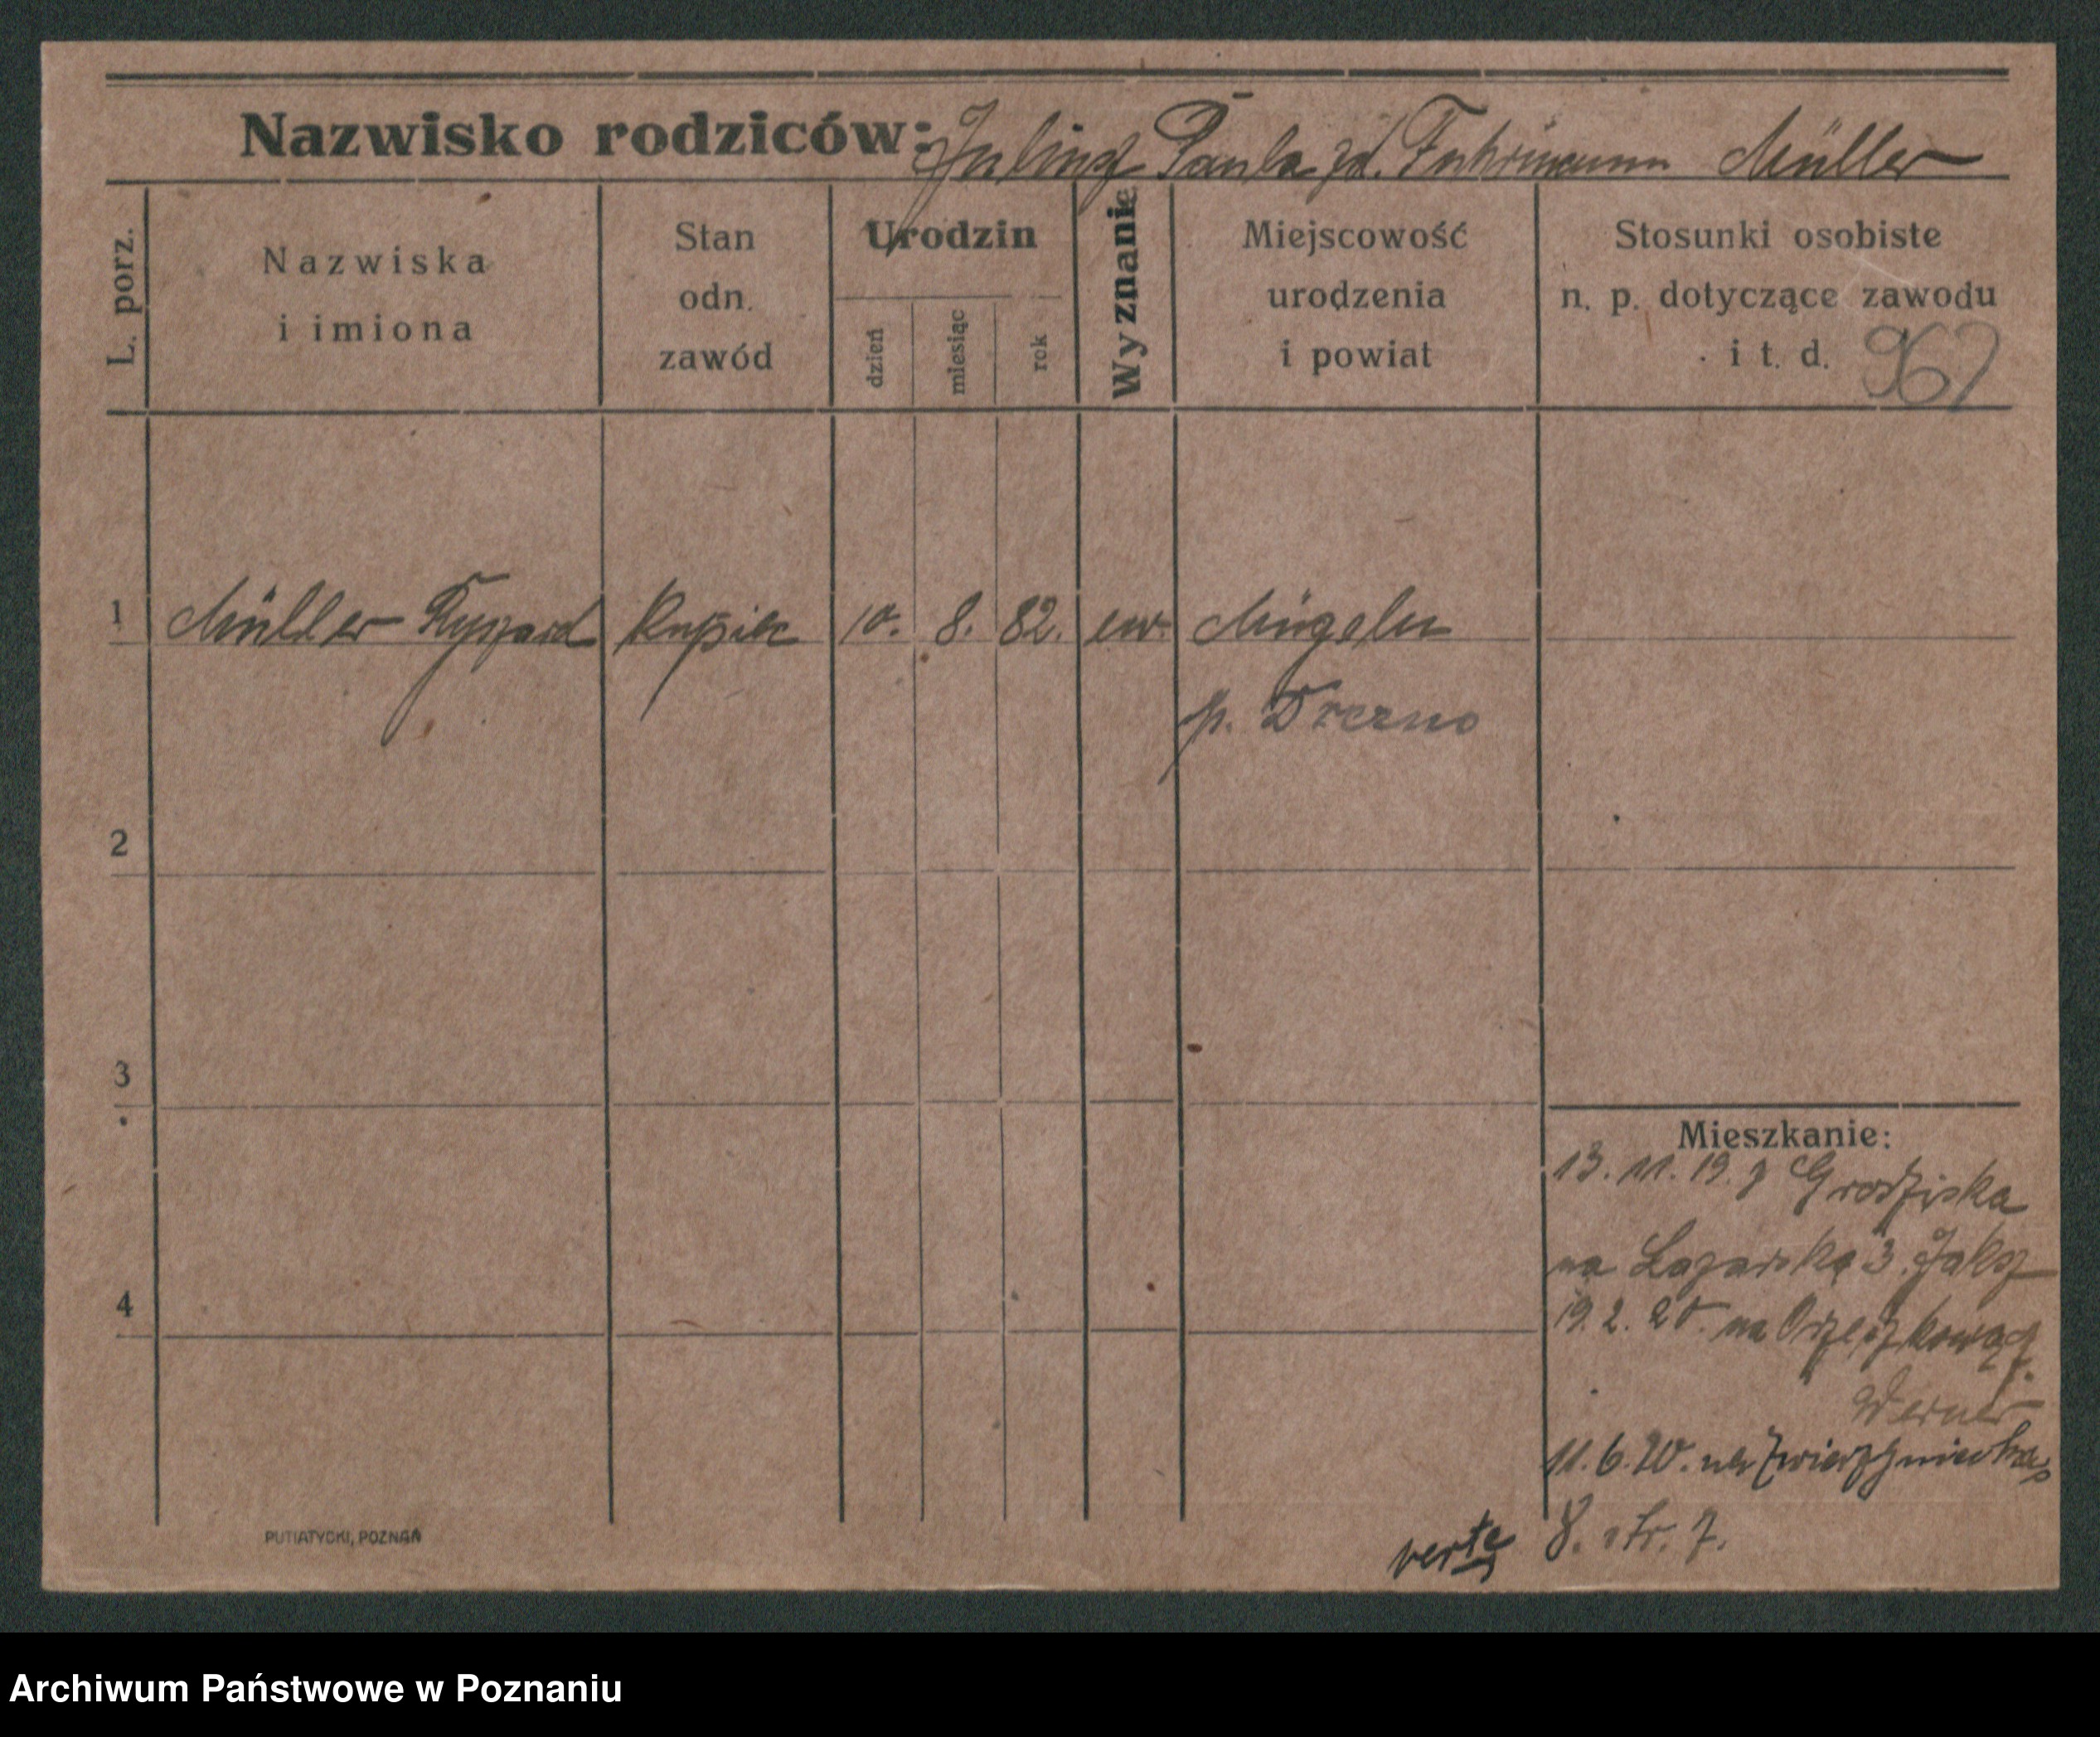 Nazwisko rodziców: Juliusz Paula zd. Fuhrmann Müller
L. porz.
Nazwiska
i imiona
Stan
odn.
zawód
Urodzin
dzień
miesiąc
rok
Wyznanie
Miejscowość
urodzenia
i powiat
Stosunki osobiste
n. p. dotyczące zawodu
i t. d.
962
1 Müller Ryszard kupiec 10. 8. 82. ew. Mügeln
p. Drezno
2
3
4
Mieszkanie:
13. 11. 19. z Grodziska
na Łazarską 3
19. 2. 20. na Orzeszkowej
Werner
11. 6. 20. na Zwierzyniecką
8. str. 7.
verte
PUTIATYCKI, POZNAŃ
Archiwum Państwowe w Poznaniu